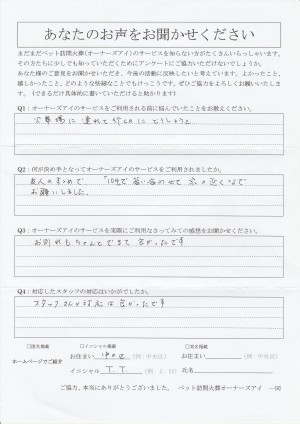 あなたのお声をお聞かせください
まだまだペット訪問火葬(オーナーズアイ)のサービスを知らない方がたくさんいらっしゃいます。
その方たちに少しでも知っていただくためにアンケートにご協力いただけないでしょうか。
あなた様のご意見をお聞かせいただき、今後の活動に反映したいと考えています。よかったこと、
嬉しかったこと、どのような些細なことでもけっこうです。ぜひご協力をよろしくお願いいたします。
(できるだけ具体的に書いていただけると助かります)
Q1:オーナーズアイのサービスをご利用される前に悩んでいたことをお教えください。
火葬場に連れて行くのにどうしようと
Q2:何が決め手となってオーナーズアイのサービスをご利用されましたか。
友人のすすめで
家の近くなので
お願いしました。
Q3:オーナーズアイのサービスを実際にご利用なさってみての感想をお聞かせください。
お別れもちゃんとできて 良かったです
Q4:対応したスタッフの対応はいかがでしたか。
スタッフさんの対応は良かったです
□匿名掲載 □イニシャル掲載 □実名掲載
ホームページでご紹介
お住まい 中央区 (例:中央区) お住まい (例:中央区)
イニシャル T.T. (例:S.H) 氏名
ご協力、本当にありがとうございました。 ペット訪問火葬オーナーズアイ